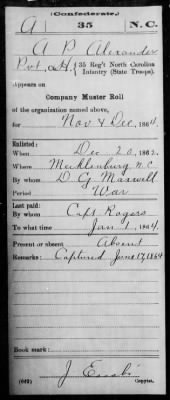 (Confederate.)
A | 35 | N.C.
A P Alexander
Pvt, Co. H, 35 Reg't North Carolina
Infantry (State Troops).
Appears on
Company Muster Roll
of the organization named above,
for Nov & Dec, 1864.
Enlisted:
When Dec 20, 1862.
Where Mecklenburg N.C.
By whom D. G. Maxwell
Period War
Last paid:
By whom Capt Rogers
To what time Jan 1, 1864.
Present or absent Absent
Remarks: Captured June 17, 1864
Book mark:
(642) Copyist.